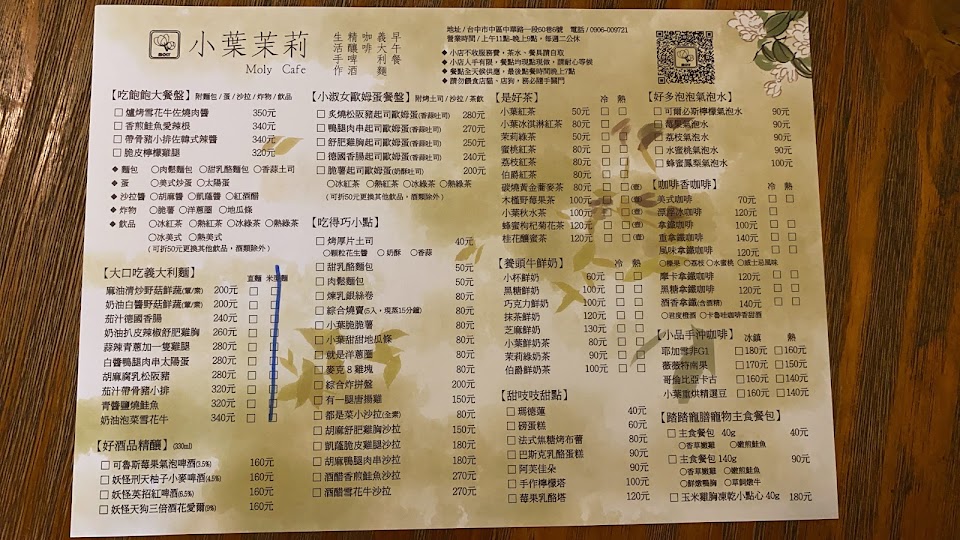 MOLY
小葉茉莉
Moly Cafe
早午餐
義大利麵
咖啡
精釀啤酒
生活手作
地址 / 台中市中區中華路一段50巷6號 電話 / 0906-009721
營業時間 / 上午11點-晚上9點，每週二公休
◆ 小店不收服務費，茶水、餐具請自取
◆ 小店人手有限，餐點均現點現做，請耐心等候
◆ 餐點全天候供應，最後點餐時間晚上7點
◆ 請勿餵食店貓、店狗，務必隨手關門
【吃飽飽大餐盤】附麵包 / 蛋 / 沙拉 / 炸物 / 飲品
□ 爐烤雪花牛佐燒肉醬 350元
□ 香煎鮭魚愛辣根 340元
□ 帶骨豬小排佐韓式辣醬 340元
□ 脆皮檸檬雞腿 320元
◆ 麵包 ○肉鬆麵包 ○甜乳酪麵包 ○香蒜土司
◆ 蛋 ○美式炒蛋 ○太陽蛋
◆ 沙拉醬 ○胡麻醬 ○凱薩醬 ○紅酒醋
◆ 炸物 ○脆薯 ○洋蔥圈 ○地瓜條
◆ 飲品 ○冰紅茶 ○熱紅茶 ○冰綠茶 ○熱綠茶
○冰美式 ○熱美式
( 可折50元更換其他飲品，酒類除外 )
【大口吃義大利麵】 直麵
麻油清炒野菇鮮蔬(葷/素) 200元 □ □
奶油白醬野菇鮮蔬(葷/素) 200元 □ □
茄汁德國香腸 240元 □ □
奶油扒皮辣椒舒肥雞胸 260元 □ □
蒜辣青蔥加一隻雞腿 280元 □ □
白醬鴨腿肉串太陽蛋 280元 □ □
胡麻腐乳松阪豬 280元 □ □
茄汁帶骨豬小排 320元 □ □
青醬鹽燒鮭魚 320元 □ □
奶油泡菜雪花牛 340元 □ □
【好酒品精釀】(330ml)
□ 可魯斯莓果氣泡啤酒(3.5%) 160元
□ 妖怪刑天柚子小麥啤酒(4.5%) 160元
□ 妖怪英招紅啤酒(6.5%) 160元
□ 妖怪天狗三倍酒花愛爾(9%) 160元
【小淑女歐姆蛋餐盤】附烤土司 / 沙拉 / 茶飲
□ 炙燒松阪豬起司歐姆蛋(香蒜吐司) 280元
□ 鴨腿肉串起司歐姆蛋(香蒜吐司) 270元
□ 舒肥雞胸起司歐姆蛋(香蒜吐司) 250元
□ 德國香腸起司歐姆蛋(香蒜吐司) 240元
□ 脆薯起司歐姆蛋(奶酥吐司) 200元
○冰紅茶 ○熱紅茶 ○冰綠茶 ○熱綠茶
( 可折50元更換其他飲品，酒類除外 )
【吃得巧小點】
□ 烤厚片土司 40元
○顆粒花生醬 ○奶酥 ○香蒜
□ 甜乳酪麵包 50元
□ 肉鬆麵包 50元
□ 煉乳銀絲卷 80元
□ 綜合燒賣(5入，現蒸15分鐘) 80元
□ 小葉脆脆薯 80元
□ 小葉甜甜地瓜條 80元
□ 就是洋蔥圈 80元
□ 麥克8雞塊 80元
□ 綜合炸拼盤 200元
□ 有一腿唐揚雞 150元
□ 都是菜小沙拉(全素) 80元
□ 胡麻舒肥雞胸沙拉 150元
□ 凱薩脆皮雞腿沙拉 180元
□ 胡麻鴨腿肉串沙拉 180元
□ 酒醋香煎鮭魚沙拉 270元
□ 酒醋雪花牛沙拉 270元
【是好茶】 冷 熱
小葉紅茶 50元 □ □
小葉冰淇淋紅茶 80元 □
茉莉綠茶 50元 □ □
蜜桃紅茶 80元 □ □
荔枝紅茶 80元 □ □
伯爵紅茶 80元 □ □
碳燒黃金蕎麥茶 80元 □ □(壺)
木槿野莓果茶 100元 □ □(壺)
小葉秋水茶 100元 □ □(壺)
蜂蜜枸杞菊花茶 120元 □ □(壺)
桂花釀蜜茶 120元 □ □(壺)
【養頭牛鮮奶】 冷 熱
小杯鮮奶 60元 □ □
黑糖鮮奶 100元 □ □
巧克力鮮奶 100元 □ □
抹茶鮮奶 120元 □ □
芝麻鮮奶 130元 □ □
小葉鮮奶茶 80元 □ □
茉莉綠鮮奶 90元 □ □
伯爵鮮奶茶 100元 □ □
【甜吱吱甜點】
□ 瑪德蓮 40元
□ 磅蛋糕 60元
□ 法式焦糖烤布蕾 80元
□ 巴斯克乳酪蛋糕 90元
□ 阿芙佳朵 90元
□ 手作檸檬塔 100元
□ 莓果乳酪塔 120元
【好多泡泡氣泡水】
□ 可爾必斯檸檬氣泡水 90元
□ 蘋果氣泡水 90元
□ 荔枝氣泡水 90元
□ 水蜜桃氣泡水 90元
□ 蜂蜜鳳梨氣泡水 100元
【咖啡香咖啡】 冷 熱
美式咖啡 70元 □ □
漂浮冰咖啡 120元 □
拿鐵咖啡 100元 □ □
重拿鐵咖啡 140元 □ □
風味拿鐵咖啡 120元 □ □
○榛果 ○荔枝 ○水蜜桃 ○威士忌風味
摩卡拿鐵咖啡 120元 □ □
黑糖拿鐵咖啡 120元 □ □
酒香拿鐵(含酒精) 140元 □ □
○君度橙酒 ○卡魯哇咖啡香甜酒
【小品手沖咖啡】 冰鎮 熱
耶加雪菲G1 □180元 □160元
薇薇特南果 □170元 □150元
哥倫比亞卡古 □160元 □140元
小葉重烘精選豆 □160元 □140元
【踏踏寵膳寵物主食餐包】
□ 主食餐包 40g 40元
○香草嫩雞 ○嫩煎鮭魚
□ 主食餐包 140g 90元
○香草嫩雞 ○嫩煎鮭魚
○鮮燉鴨胸 ○草飼燉牛
□ 玉米雞胸凍乾小點心 40g 180元